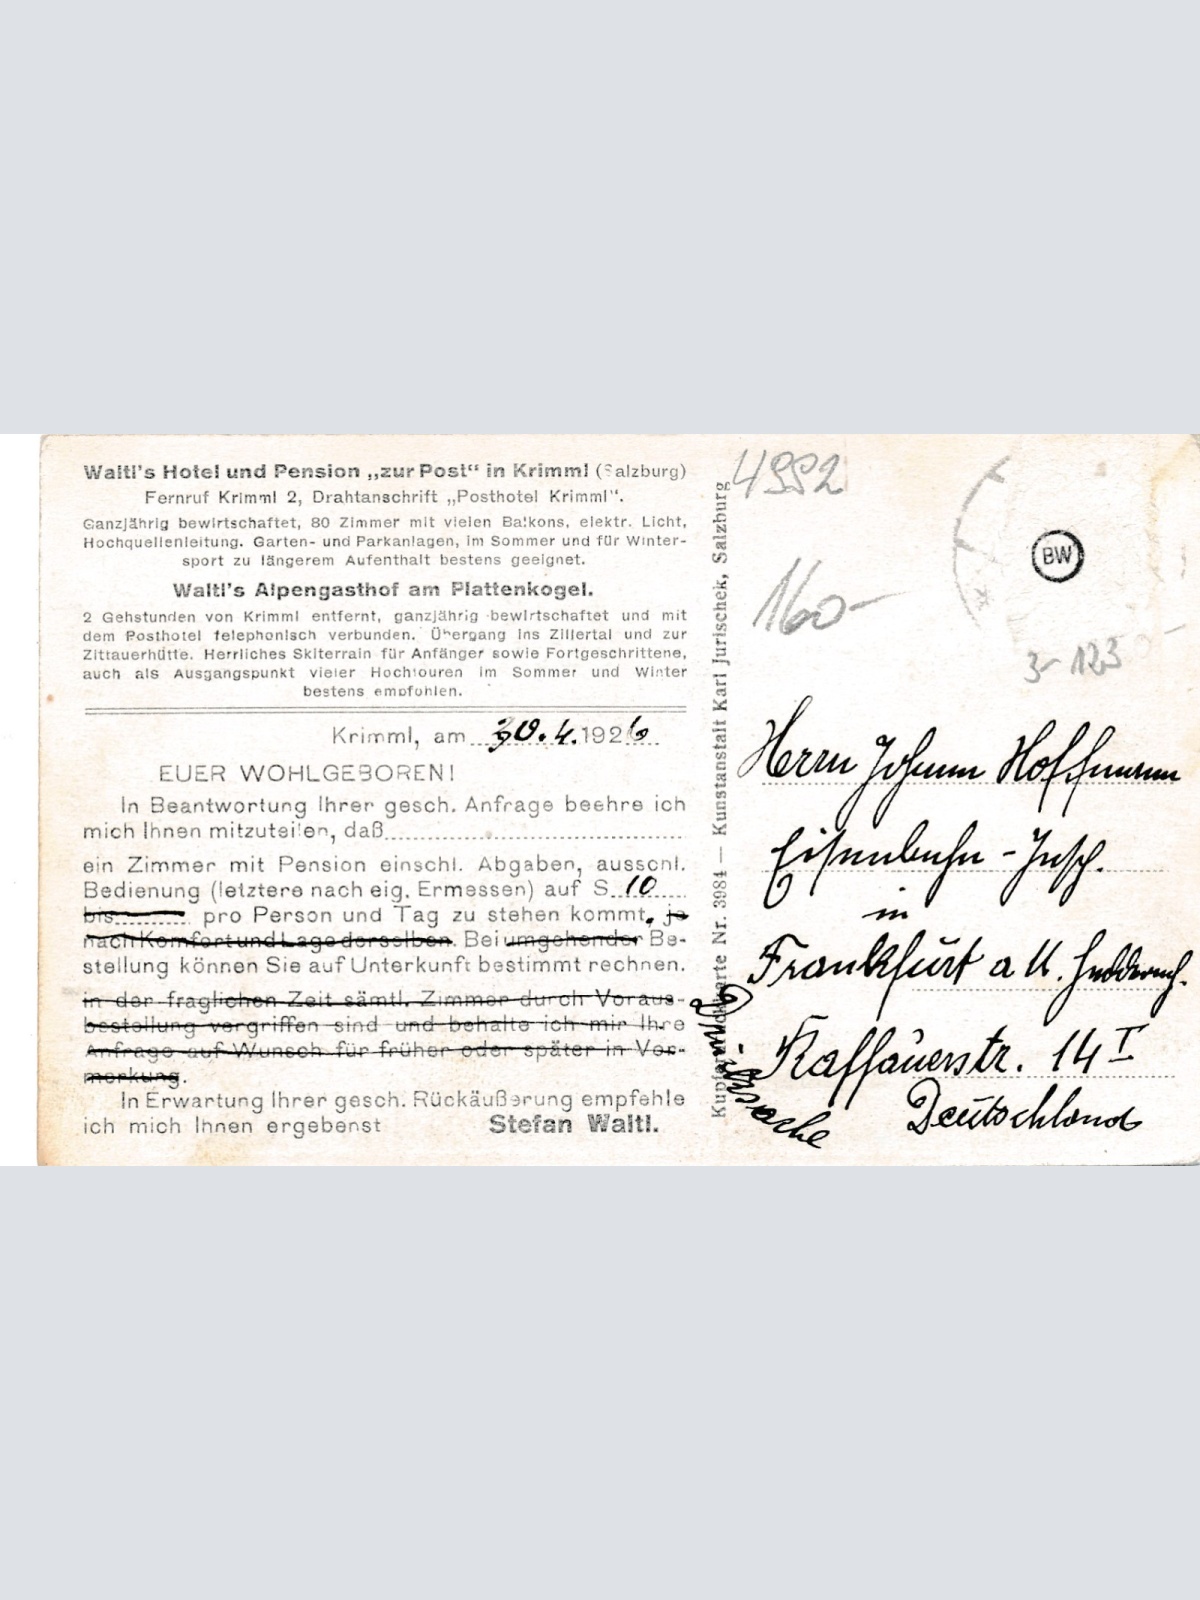 Waltl's Hotel und Pension „zur Post“ in Krimml (Salzburg)
Fernruf Krimml 2, Drahtanschrift „Posthotel Krimml“.
Ganzjährig bewirtschaftet, 80 Zimmer mit vielen Balkons, elektr. Licht,
Hochquellenleitung. Garten- und Parkanlagen, im Sommer und für Winter-
sport zu längerem Aufenthalt bestens geeignet.
Waltl's Alpengasthof am Plattenkogel.
2 Gehstunden von Krimml entfernt, ganzjährig bewirtschaftet und mit
dem Posthotel telephonisch verbunden. Übergang ins Zillertal und zur
Zittauerhütte. Herrliches Skiterrain für Anfänger sowie Fortgeschrittene,
auch als Ausgangspunkt vieler Hochtouren im Sommer und Winter
bestens empfohlen.
Krimml, am 30.4.1926
EUER WOHLGEBOREN!
In Beantwortung Ihrer gesch. Anfrage beehre ich
mich Ihnen mitzuteilen, daß
ein Zimmer mit Pension einschl. Abgaben, ausschl.
Bedienung (letztere nach eig. Ermessen) auf S. 10
bis pro Person und Tag zu stehen kommt. je
nach Komfort und Lage derselben. Bei umgehender Be-
stellung können Sie auf Unterkunft bestimmt rechnen.
in der fraglichen Zeit sämtl. Zimmer durch Voraus-
bestellung vergriffen sind und behalte ich mir Ihre
Anfrage auf Wunsch für früher oder später in Vor-
merkung.
In Erwartung Ihrer gesch. Rückäußerung empfehle
ich mich Ihnen ergebenst Stefan Waltl.
Kupferdruckkarte Nr. 3984 — Kunstanstalt Karl Jurischek, Salzburg
4992
160-
BW
3- 123
Herrn Johann Hoffmann
Eisenbahn-Insp.
in
Frankfurt a M.
14 I
Deutschland